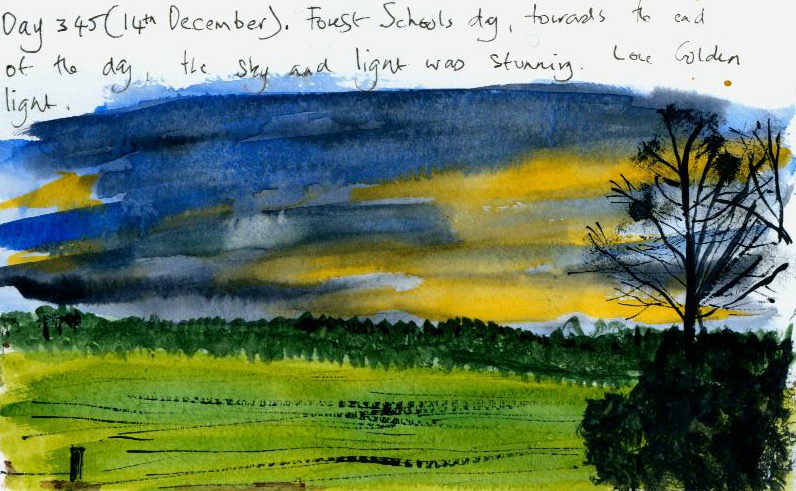 Day 345 (14th December). Forest Schools day, towards the end
of the day, the sky and light was stunning. Low Golden
light.